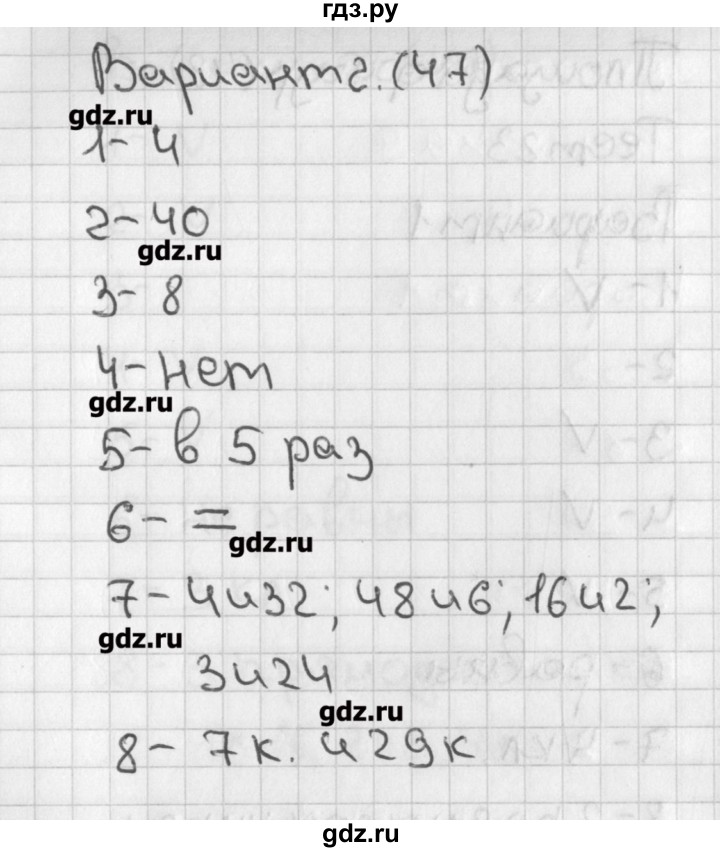 гдз.ру
Вариант 2. (47)
gdz.ru
1- 4
2- 40
gdz.ru
3- 8
4- нет
gdz.ru
5- в 5 раз
6- =
gdz.ru
7- 4и32; 48и6; 16и2;
gdz.ru
3и24
gdz.ru
8- 7к. и 29к
gdz.ru